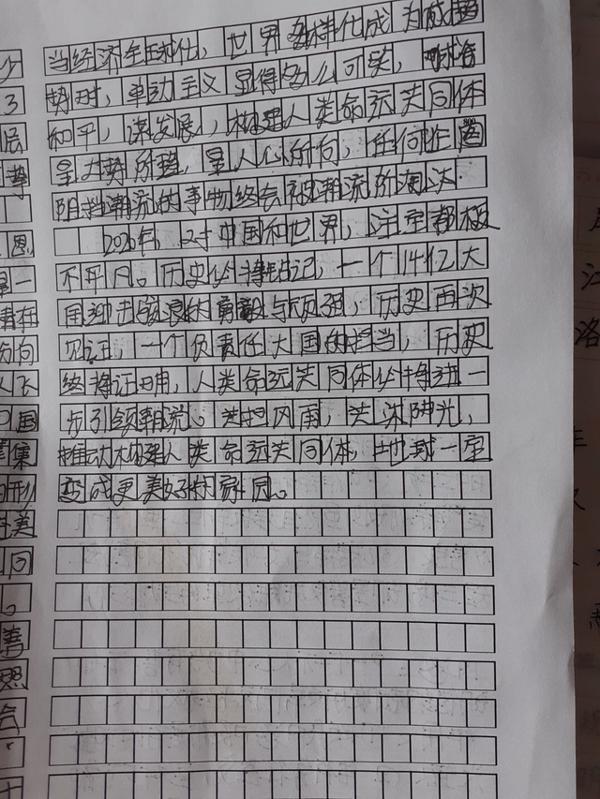 当经济全球化，世界多样化成为威趋
势时，单边主义显得多么可笑，
和平，谋发展，构建人类命运共同体
是大势所趋，是人心所向，任何企图
阻挡潮流的事物终会被潮流所淘汰
2020年，对中国和世界，注定都极
不平凡。历史必将铭记，一个14亿大
国迎击的勇毅与顽强，历史再次
见证，一个负责任大国的担当，历史
终将证明，人类命运共同体必将进一
步引领潮流。共担风雨，共沐阳光，
推动构建人类命运共同体，地球一定
变成更美好的家园。
少
3
展
势
恩
一
在
向
飞
国
集
形
美
同
。
会
十
江
洛